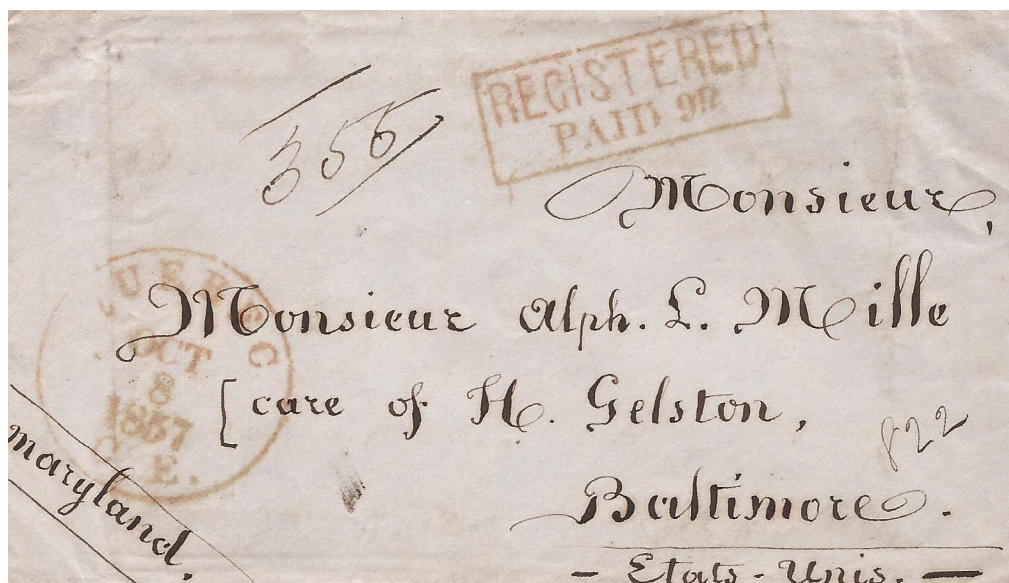 REGISTERED
PAID 9D
355
Monsieur,
QUEBEC
OCT
8
1857
C.E.
Monsieur Alph. L. Mille
[care of H. Gelston,
822
Baltimore.
Maryland.
- Etats-Unis. -